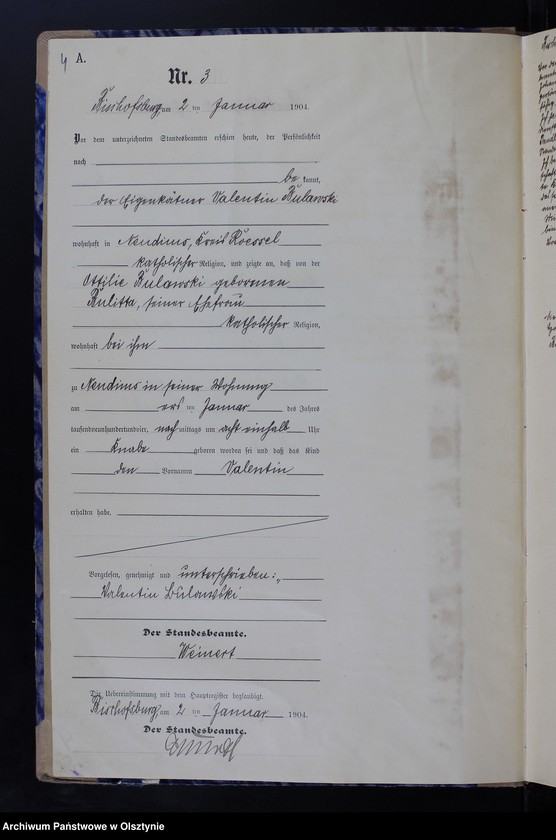 4 A.
Nr. 3
Bischofsburg am 2 ten Januar 1904.
Vor dem unterzeichneten Standesbeamten erschien heute, der Persönlichkeit
nach
be kannt,
der Eigenkätner Valentin Bulawski
wohnhaft in Neudims, Kreis Roessel
katholischer Religion, und zeigte an, daß von der
Ottilie Bulawski geborenen
Kulitta, seiner Ehefrau
katholischer Religion,
wohnhaft bei ihm
zu Neudims in seiner Wohnung
am ersten Januar des Jahres
tausendneunhundertundvier, nachmittags um acht einhalb Uhr
ein Knabe geboren worden sei und daß das Kind
den Vornamen Valentin
erhalten habe.
Vorgelesen, genehmigt und unterschrieben:
Valentin Bulawski
Der Standesbeamte.
Weinert
Die Uebereinstimmung mit dem Hauptregister beglaubigt.
Bischofsburg am 2 ten Januar 1904.
Der Standesbeamte.
Archiwum Państwowe w Olsztynie